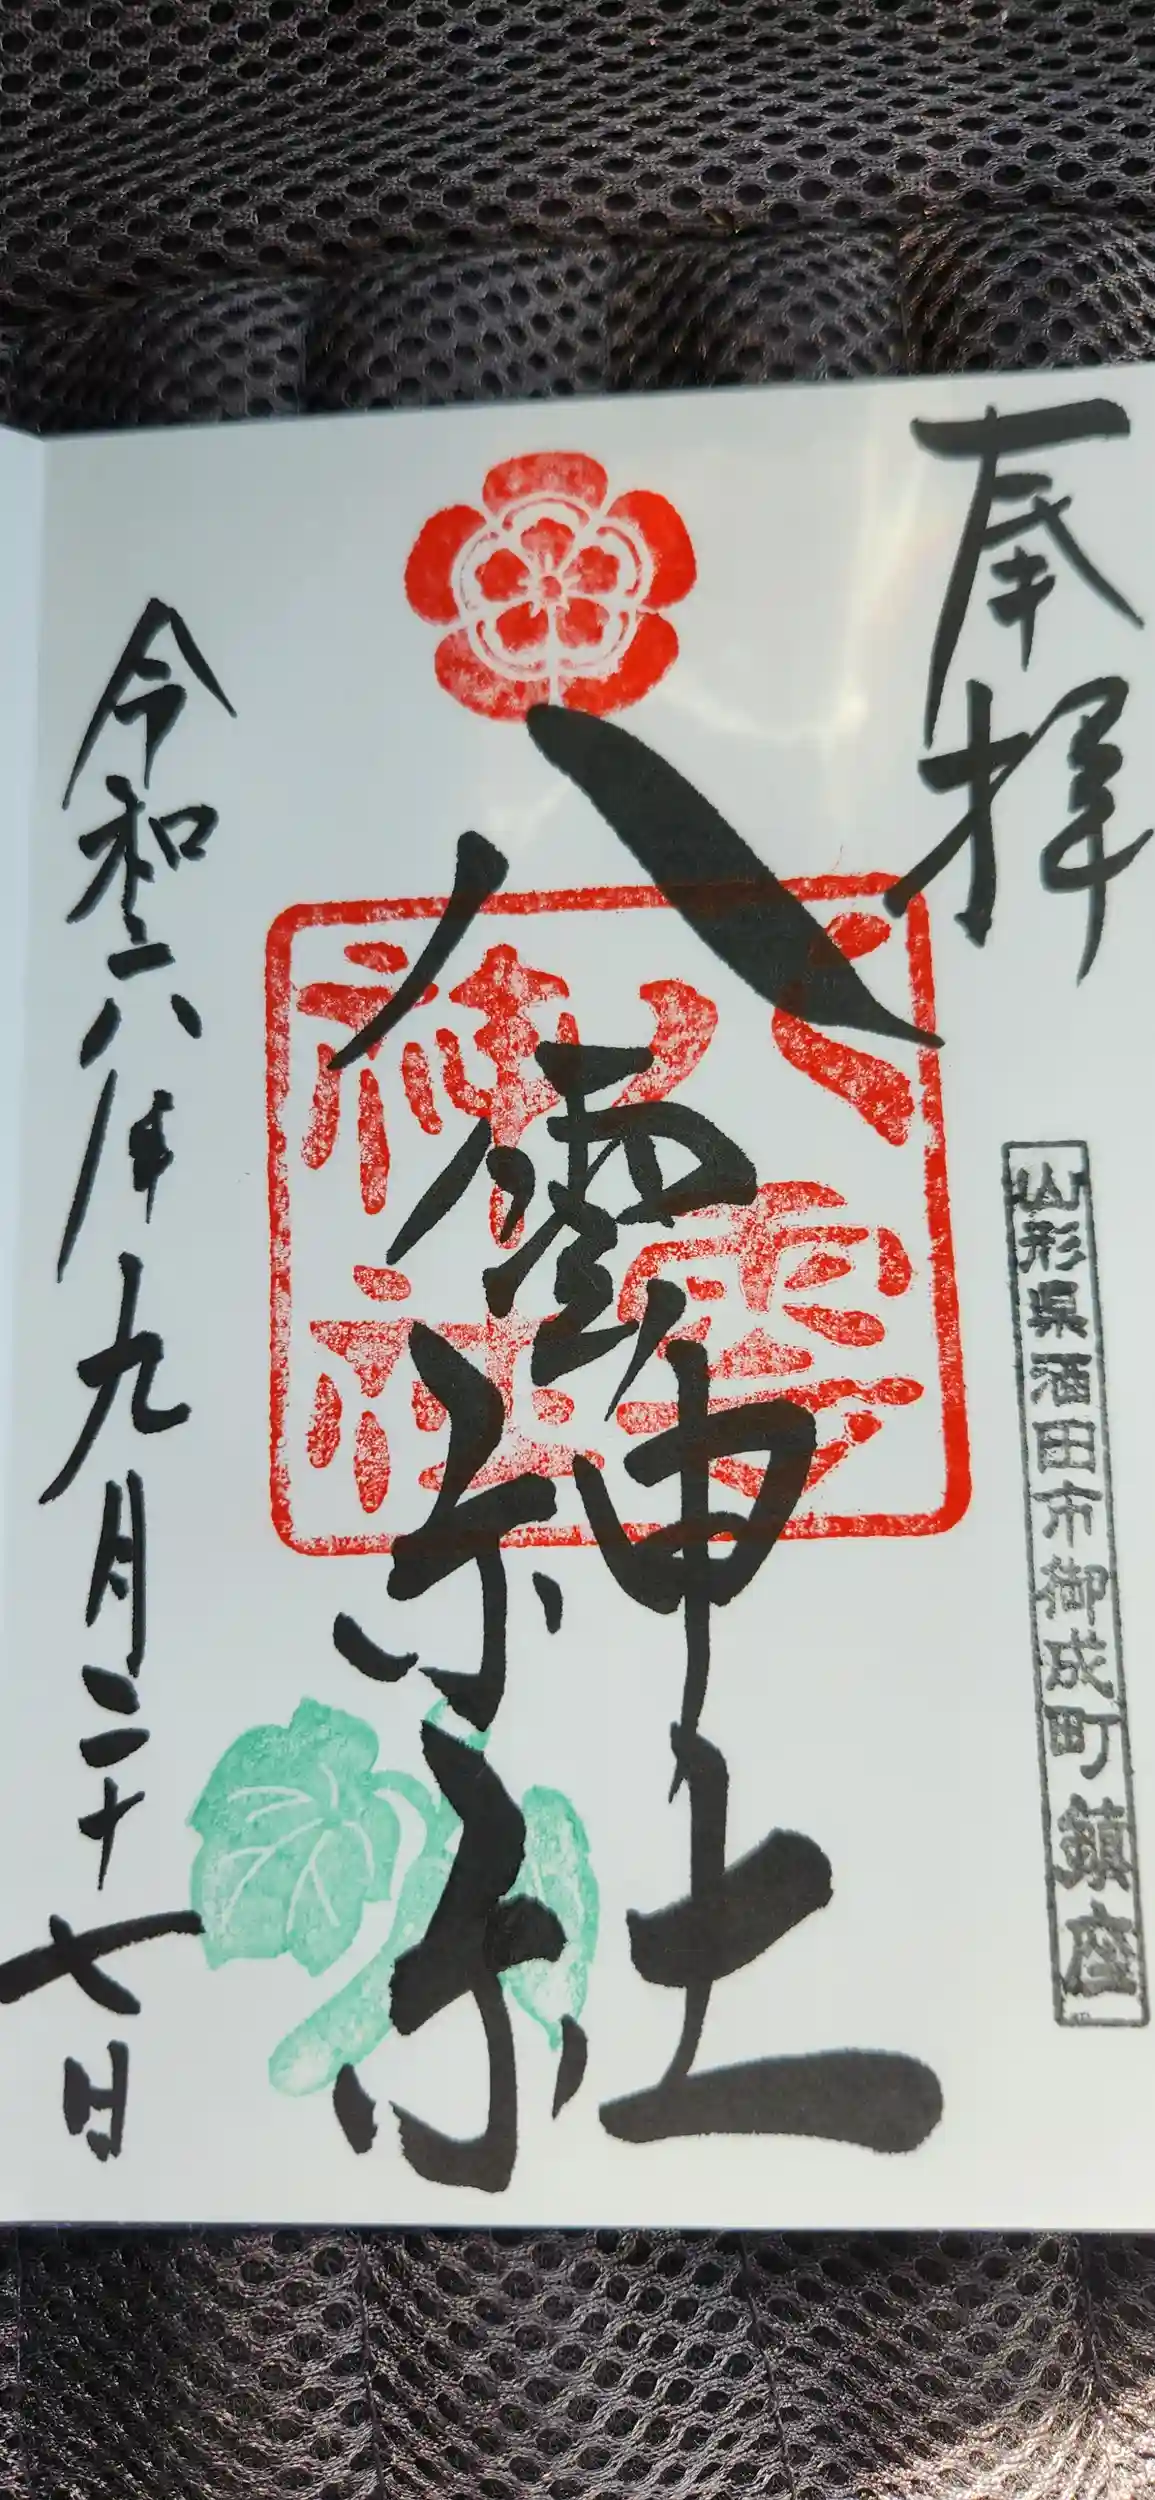 奉拝
山形県酒田市御成町鎮座
八雲神社
八雲神社
令和六年九月二十七日